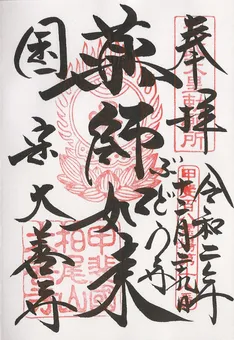 奉拝
令和二年
十二月二九日
ぶどう寺
薬師如来
国宗大善寺
甲斐國
柏尾山